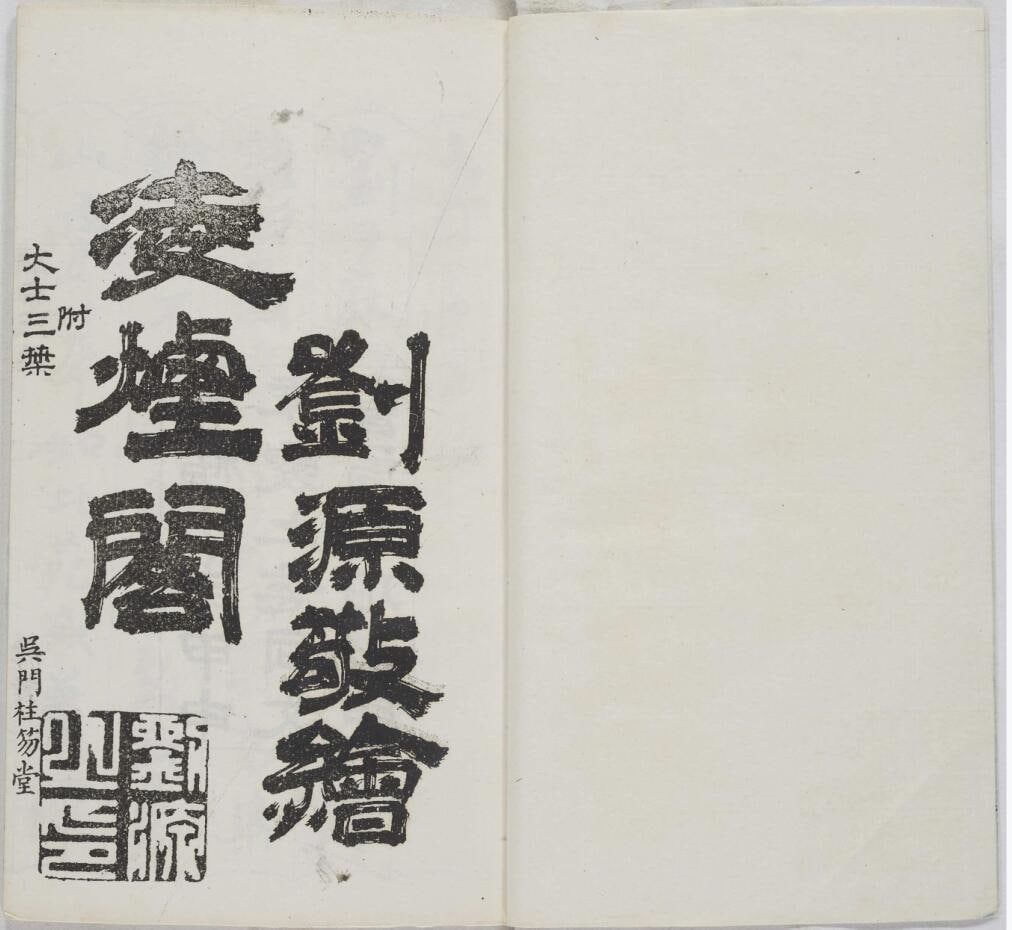 劉源敬繪
凌煙閣
附
大士三枼
吳門桂笏堂
劉源之印